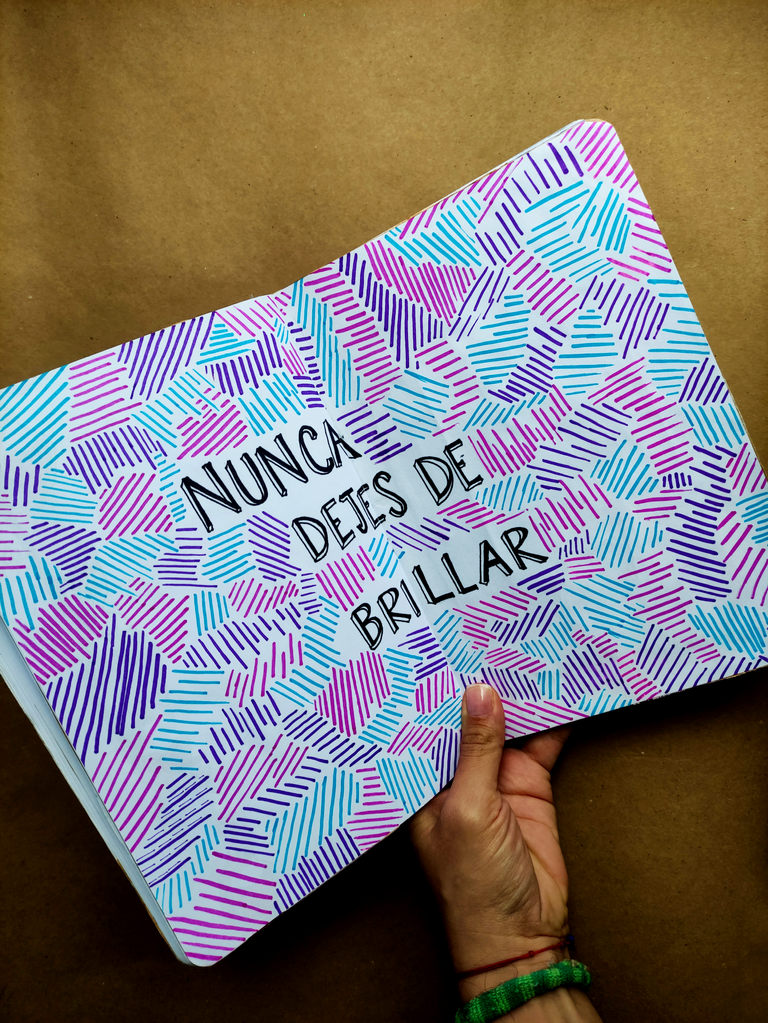 NUNCA
DEJES DE
BRILLAR